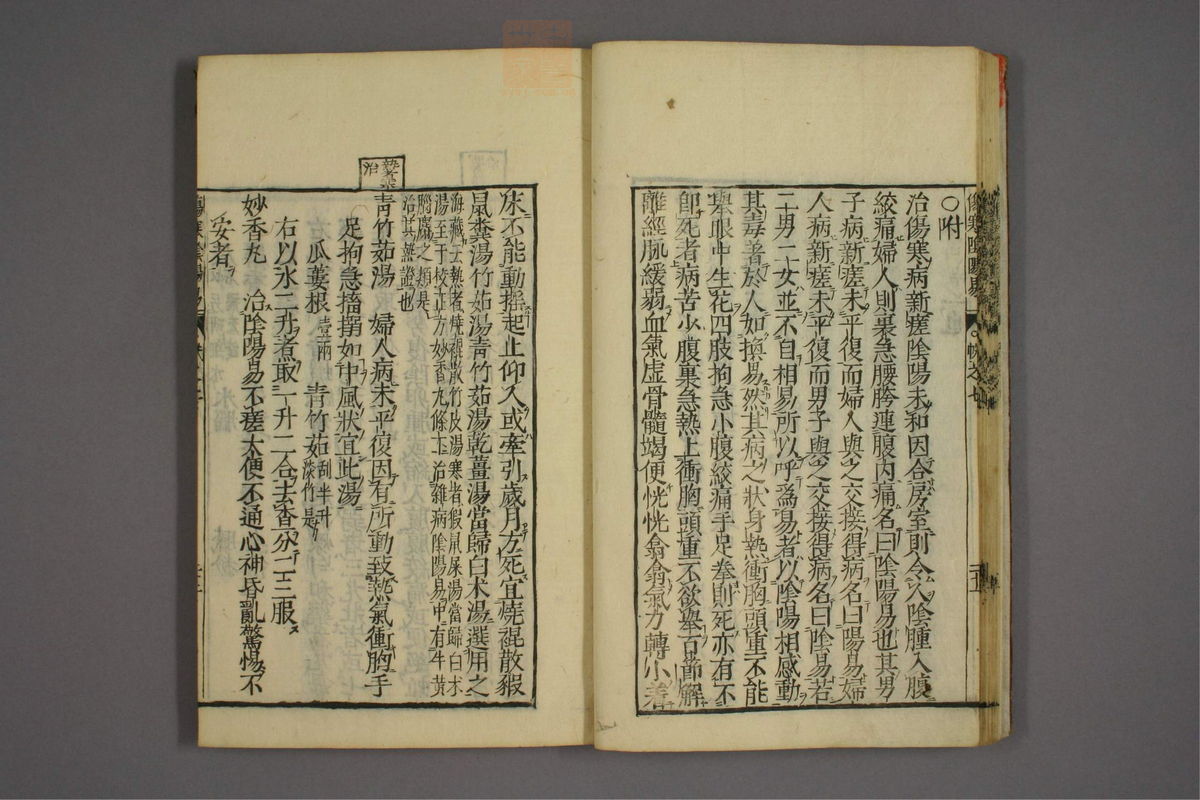 ○附
治傷寒病新瘥陰陽未和因合房室則令人陰腫入腹
絞痛婦人則裏急腰胯連腹内痛名曰陰陽易也其男
子病新瘥未平復而婦人與之交接得病名曰陽易婦
人病新瘥未平復而男子與之交接得病名曰陰易若
二男二女並不自相易所以呼爲易者以陰陽相感動
其毒著於人如換易然其病之狀身熱衝胸頭重不能
舉眼中生花四肢拘急小腹絞痛手足拳則死亦有不
即死者病苦少腹裏急熱上衝胸頭重不欲舉百節解
離經脉緩弱血氣虛骨髓竭便恍恍翕翕氣力轉小着
床不能動搖起止仰人或牽引歲月方死宜燒裩散豭
鼠糞湯竹茹湯青竹茹湯乾薑湯當歸白术湯選用之
海藏云熱者燒裩散竹皮湯寒者豭鼠屎湯當歸白术
湯至于校正方妙香丸條下治雜病陰陽易中有牛黄
腦麝之類是
治其熱證也
治
青竹茹湯 婦人病未平復因有所動致熱氣衝胸手
足拘急搐搦如中風狀宜此湯
瓜蔞根壹兩 青竹茹刮半升淡竹是
右以水二升煮取一升二合去查分二三服
妙香丸 治陰陽易不瘥大便不通心神昏亂驚惕不
安者